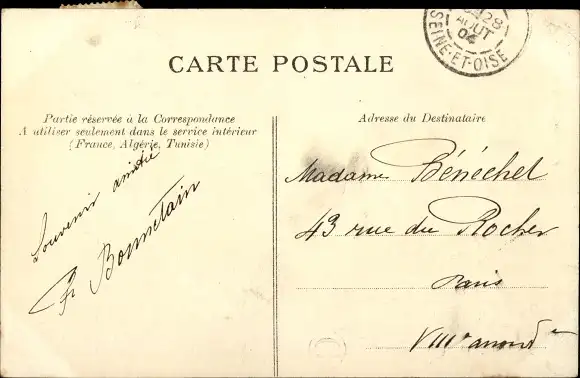 28
AOUT
04
SEINE-ET-OISE
CARTE POSTALE
Partie réservée à la Correspondance
A utiliser seulement dans le service intérieur
(France, Algérie, Tunisie)
Souvenir amitié
Fr Bonnetain
Adresse du Destinataire
Madame Bénéchet
43 rue du Rocher
Paris
VIIIe arrondt